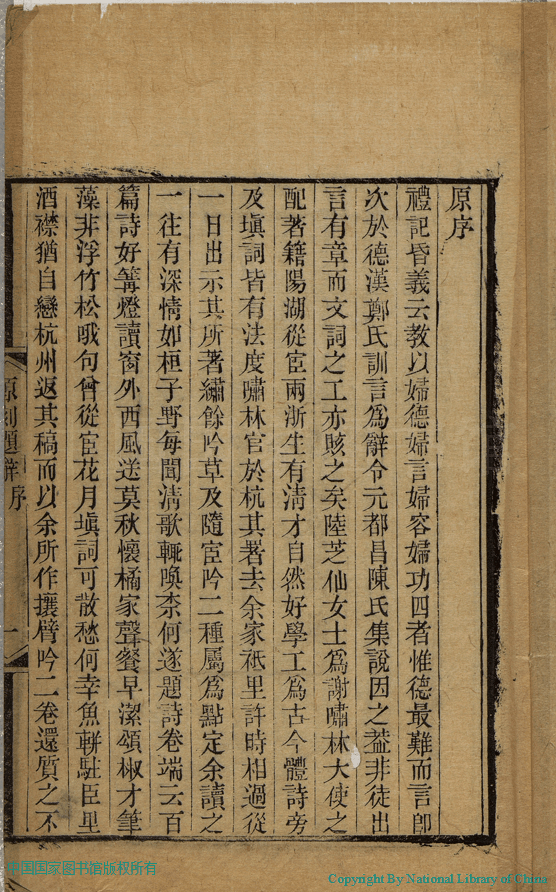 原序
禮記昏義云教以婦德婦言婦容婦功四者惟德最難而言卽
次於德漢鄭氏訓言爲辭令元都昌陳氏集說因之葢非徒出
言有章而文詞之工亦賅之矣陸芝仙女士爲謝嘯林大使之
配著籍陽湖從宦兩浙生有淸才自然好學工爲古今體詩旁
及塡詞皆有法度嘯林官於杭其署去余家祗里許時相過從
一日出示其所著繡餘吟草及隨宦吟二種屬爲點定余讀之
一往有深情如桓子野每聞淸歌輒喚柰何遂題詩卷端云百
篇詩好篝燈讀窗外西風送莫秋懷橘家聲餐早潔頌椒才筆
藻非浮竹松哦句曾從宦花月塡詞可散愁何幸魚軿駐臣里
酒襟猶自戀杭州返其稿而以余所作攘臂吟二卷還質之不
原刻題辭序
一
中国国家图书馆版权所有
Copyright By National Library of China